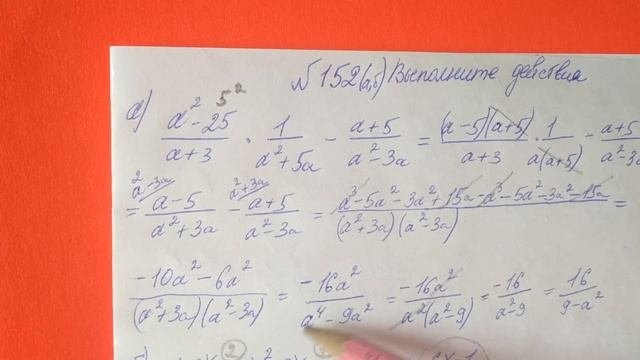 N152(а,б) Выполните действия
а) (a² - 25)/(a+3) · 1/(a²+5a) - (a+5)/(a²-3a) = (a-5)(a+5)/(a+3) · 1/(a(a+5)) - (a+5)/(a²-3a)
= (a-5)/(a²+3a) - (a+5)/(a²-3a) = (a³-5a²-3a²+15a-a³-5a²-3a²-15a)/((a²+3a)(a²-3a)) =
(-10a²-6a²)/((a²+3a)(a²-3a)) = -16a²/(a⁴-9a²) = -16a²/(a²(a²-9)) = -16/(a²-9) = 16/(9-a²)